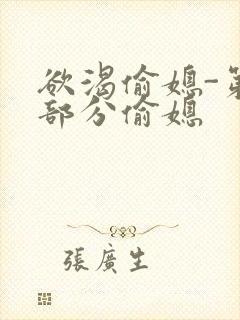 欲渴偷媳-第
部分偷媳
張廣生